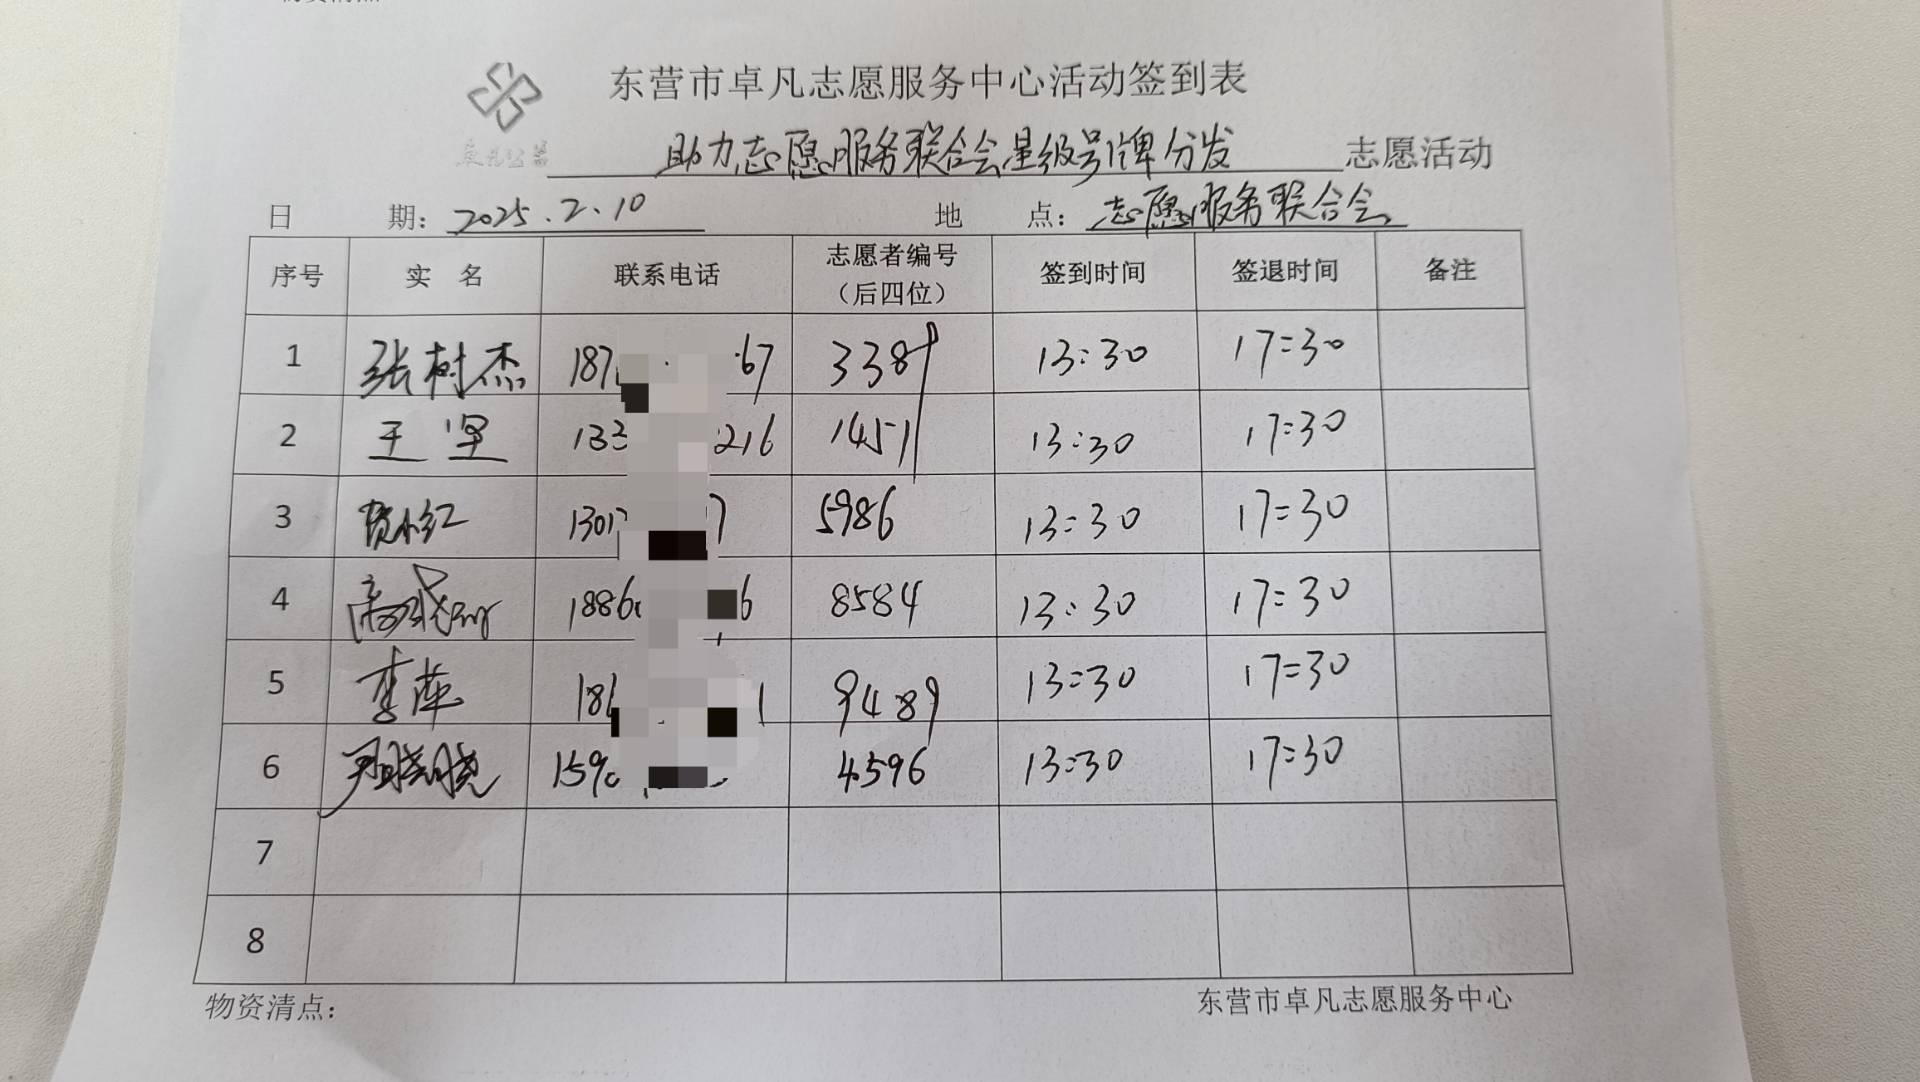 东营市卓凡志愿服务中心活动签到表
助力志愿服务联合会星级号牌分发 志愿活动
日 期：2025.2.10 地 点：志愿服务联合会
序号 实 名 联系电话 志愿者编号（后四位） 签到时间 签退时间 备注
1 张树杰 187 67 3389 13:30 17:30
2 王坚 133 216 1451 13:30 17:30
3 贾小红 1301 7 5986 13:30 17:30
4 1886 6 8584 13:30 17:30
5 李萍 186 1 9489 13:30 17:30
6 晓晓 159 4596 13:30 17:30
7
8
物资清点： 东营市卓凡志愿服务中心